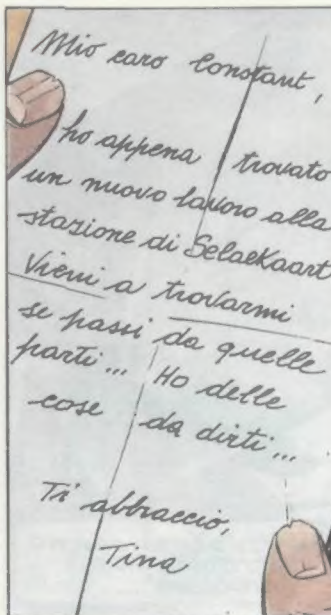 Mio caro Constant,
ho appena trovato
un nuovo lavoro alla
stazione di Selaekaart
Vieni a trovarmi
se passi da quelle
parti... Ho delle
cose da dirti...
Ti abbraccio,
Tina